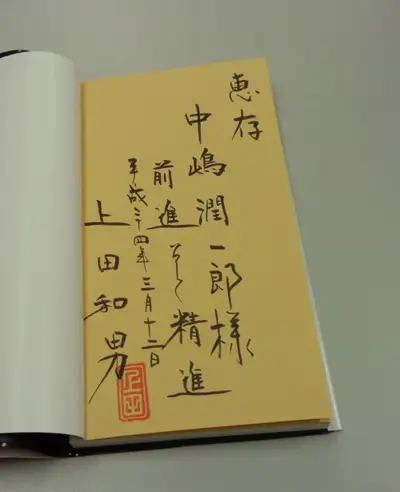 恵存
中嶋潤一郎様
前進そして精進
平成二十四年三月十二日
上田和男
上田